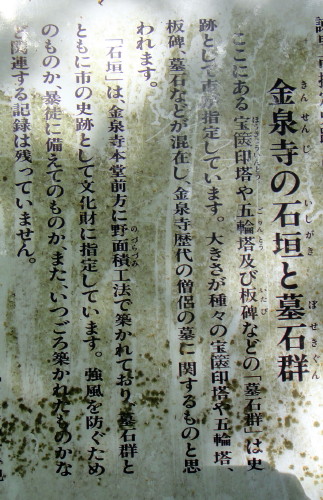 金泉寺の石垣と墓石群
きんせんじ
いしがき
ぼせきぐん
ここにある宝篋印塔や五輪塔及び板碑などの「墓石群」は史
ほうきょういんとう
ごりんとう
いたび
跡として市が指定しています。大きさが種々の宝篋印塔や五輪塔、
板碑、墓石などが混在し、金泉寺歴代の僧侶の墓に関するものと思
われます。
「石垣」は、金泉寺本堂前方に野面積工法で築かれており、墓石群と
のづらづみ
ともに市の史跡として文化財に指定しています。強風を防ぐため
のものか、暴徒に備えてのものか、また、いつごろ築かれたものかな
ど関連する記録は残っていません。